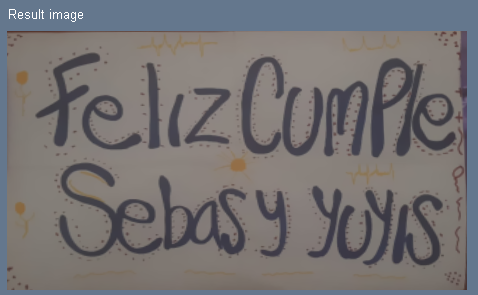 Result image
Feliz Cumple
Sebas y yuyis